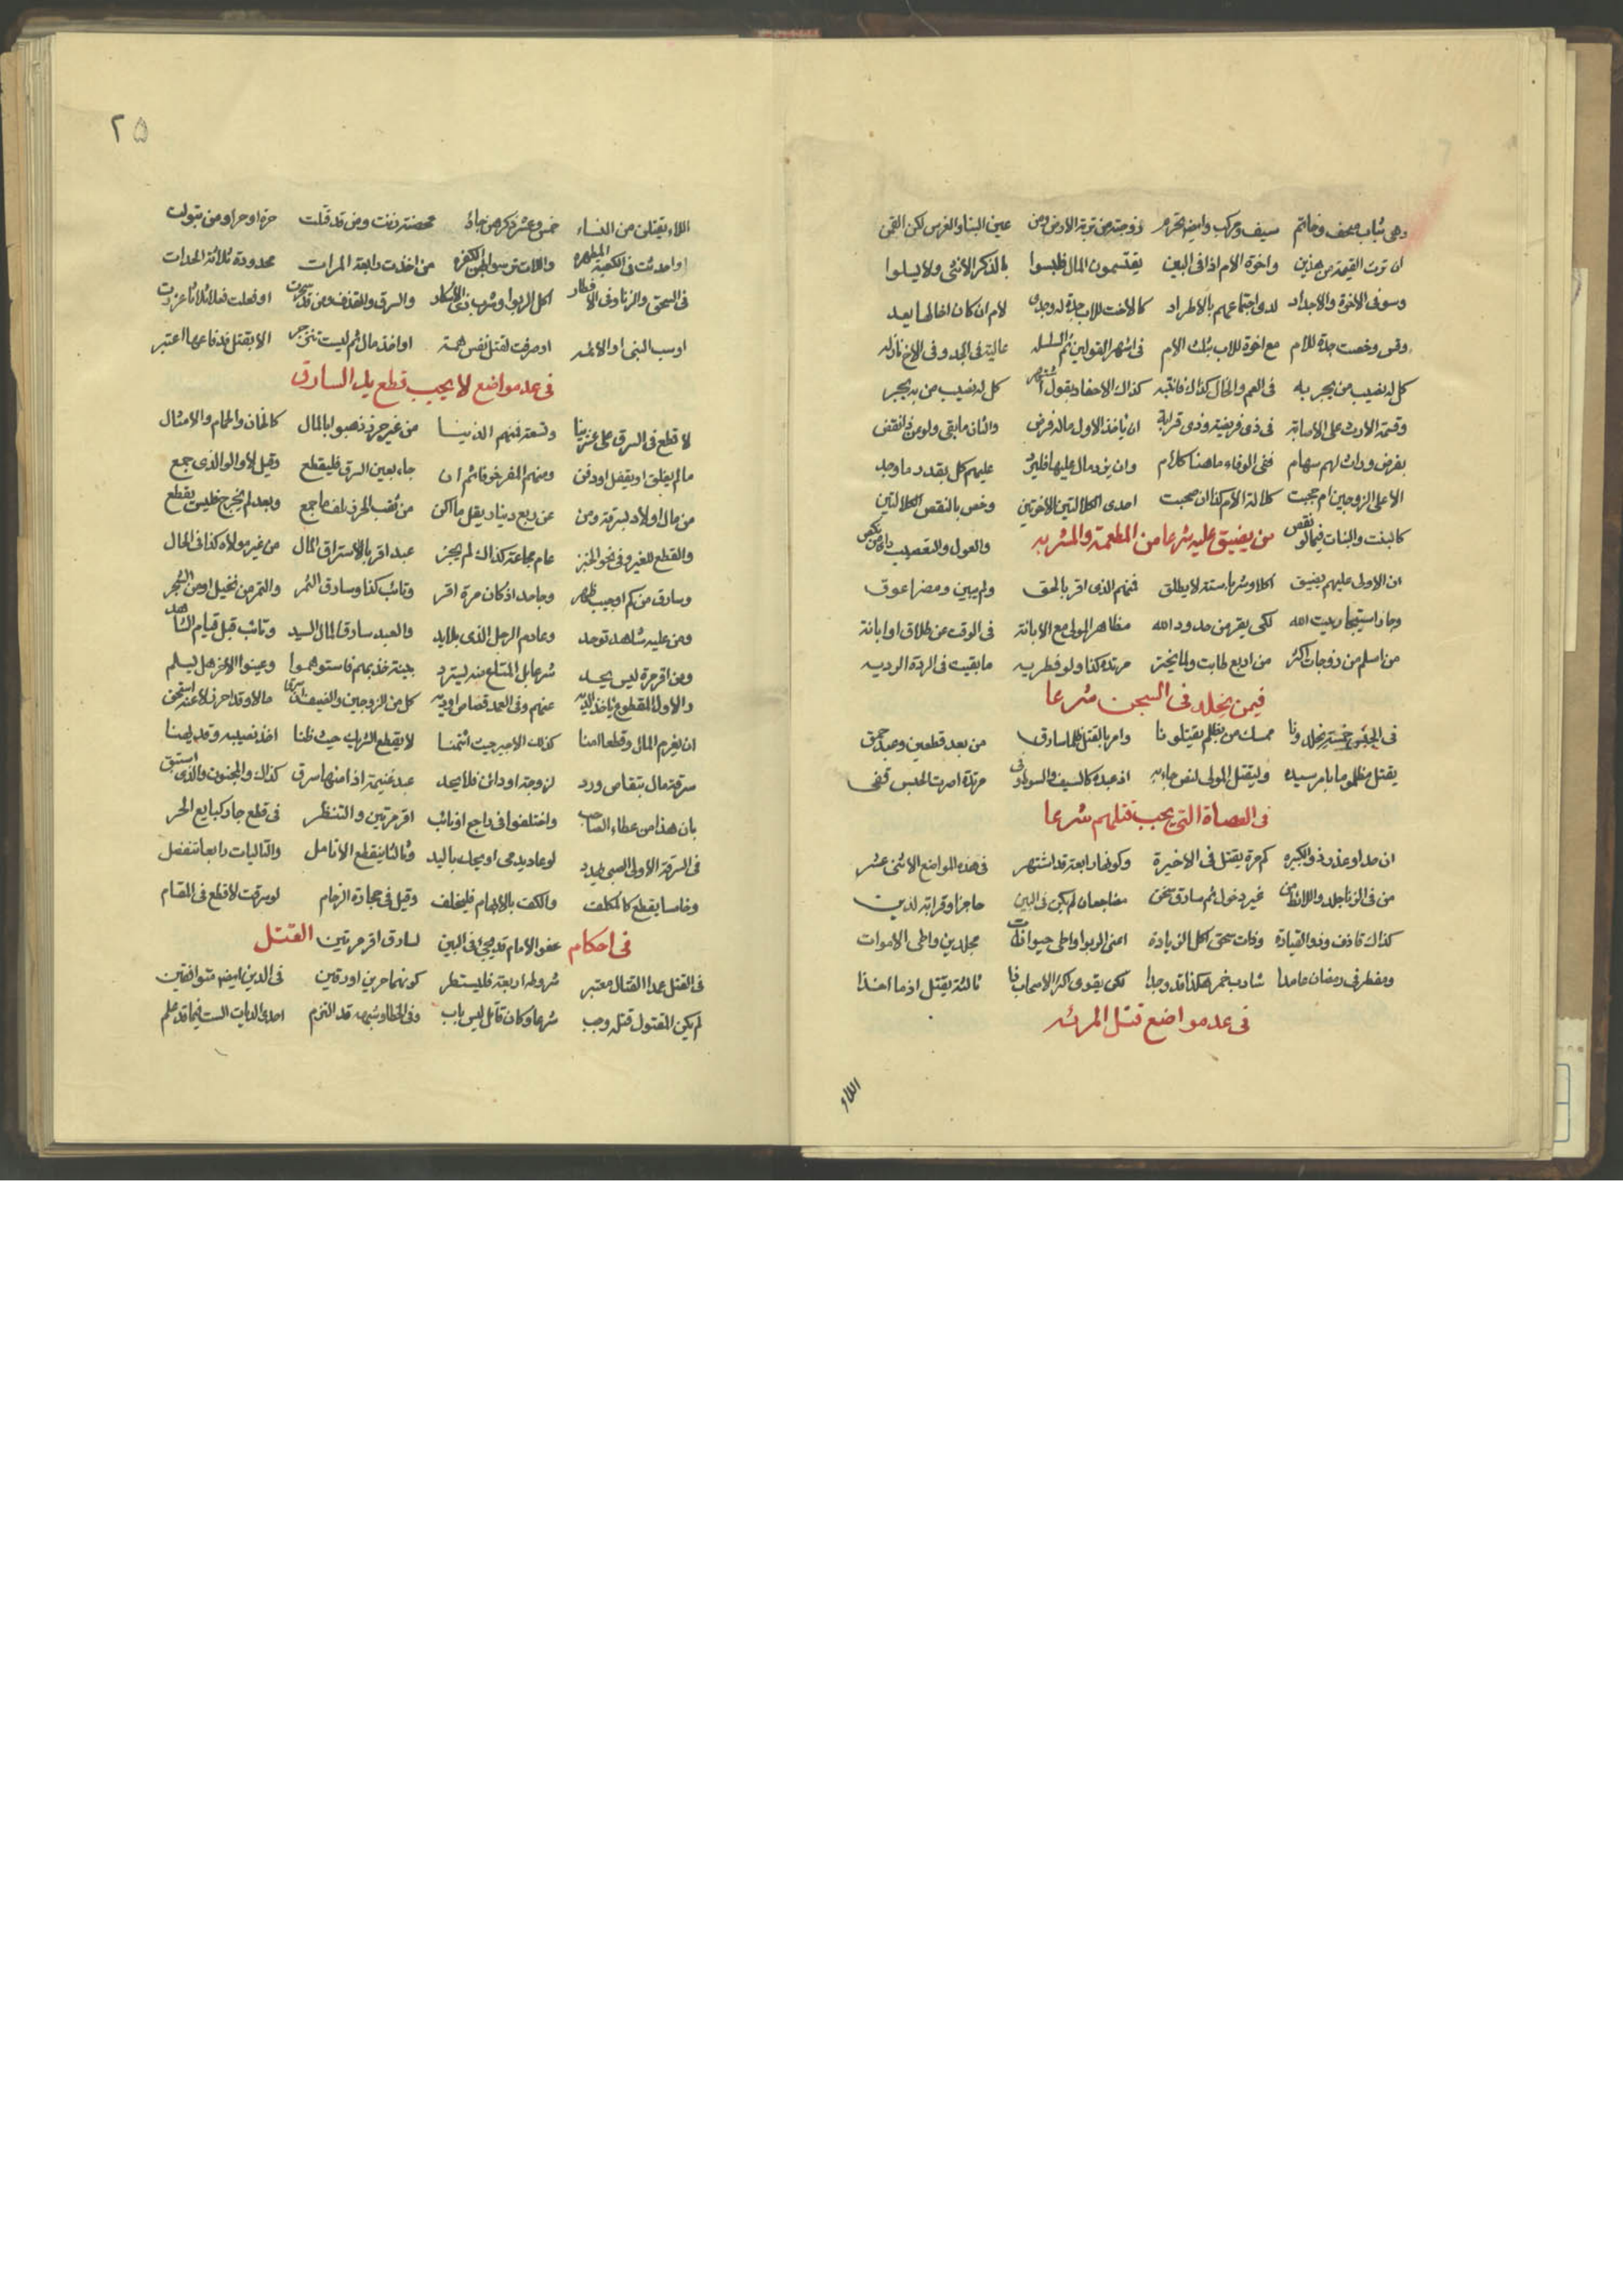 وهی ثیاب مصحف وخاتم سیف ومرکب وایضا تحرم زوجته من تربة الارض ومن عین البنا والغرس لکن القمی
ان ترث القیمة من هذین واخوة الام اذا فی البین یقتسمون المال فلبسوا بالذکر الانثی ولا یبلوا
وسو فی الاخوة والاجداد لدی اجتماعهم بالاطراد کالاخت للاب جدة له وجدی لام ان کان اخا لها یعد
وقس وخصت جدة للام مع اخوة للاب بثلث الام فی اشهر القولین ثم السلسله عالیة فی الجد وفی الاخ نازله
کل له نصیب من یجر به فی العم والخال کذاک فانتبه کذاک الاحفاد بقول اشتهر کل له نصیب من به یجر
وقسمة الارث علی الاصابة فی ذی فریضة وذی قرابة ان یاخذ الاول ماله فرض والثان ما بقی ولو عن ذا نقض
بفرض وراث لهم سهام ففی الوفاء ما هنا کلام وان یزد مال علیها فلیرد علیهم کل بقدر ما وجد
الا علی الزوجین ام حجبت کلالة الام کذا ان صحبت احدی الکلالتین الاخرتین وخص بالنقص الکلالتین
کالبنت والبنات فیما لو نقص والعول والتعصیب
من یضیق علیه شرعا من المطعمة والمشربه
ان الاولی علیهم یضیق اکلا وشربا ستة لا یطلق فمنهم الذی اقر بالحق ولم یبین ومضرا عوق
وجاز استیجار بیت الله لکی یفر من حدود الله مظاهر المولی مع الابانة فی الوقت عن طلاق او ابانة
من اسلم من زوجات اکثر من اربع طابت ولما یختر مرتدة کذا ولو فطریه ما بقیت فی الردة الردیه
فیمن یخلد فی السجن شرعا
فی الحبس خمسة یخلدونا ممسک من بظلم یقتلونا وامر بالقتل ظلما سارق من بعد قطعین وعبد حمق
یقتل مظلوما بامر سیده ولیقتل المولی لنص جاء به اذ عبده کالسیف والسوط وفی مرتدة اصرت الحبس قفی
فی العصاة التی یجب قتلهم شرعا
ان حد او عزر ذو الکبیره کم مرة یقتل فی الاخیرة وکونها رابعة قد اشتهر فی هذه المواضع الاثنی عشر
من فی الزنا جلد واللائط من غیر دخول ثم سارق سجن مضاجعان لم یکن فی البین حاجز او قرابة لذین
کذاک قاذف وذو القیادة وذات سحق اکل الزیادة اعنی الربوا واطی حیوانات مجلدین واطی الاموات
ومفطر فی رمضان عامدا شارب خمر هکذا قد وجدا لکن یقوی اکثر الاصحاب ذا ثالثة یقتل اذ ما اخذا
فی عد مواضع قتل المرئه
اللاء
٢٥
اللاء یقتلن من النساء خمس وعشر ذکرهن جاء محصنة زنت ومن قد قتلت حرة او حرا ومن تبولت
او احدثت فی الکعبة المطهره واللات تر سوا لهن الکفره من اخذت رابعة المرات محدودة ثلاثة الحدات
فی السحق والزنا وفی الافطار اکل الربوا وشرب ذی الاسکار والسرق والقذف ومن قد سحرت او فعلت فعلا ثلاثا عزرت
او سب النبی او الائمه او صرفت لقتل نفس همة او اخذ مال ثم لیست تنزجر الا بقتل فدفاعها اعتبر
فی عد مواضع لا یجب قطع ید السارق
لا قطع فی السرق علی عشرینا وتسعة فمنهم الذینا من غیر حرز ذهبوا بالمال کالخان والحمام والامثال
ما لم یغلق او یقفل او دفن ومنهم المفرخ فاثم ان جاء بعین السرق فلیقطع وقیل لا والوالذی جمع
من مال اولاد لسرقة ومن عن ربع دینار یقل ما اکن من ثقب الحرز لمن ما جمع وبعد لم یخرج فلیس یقطع
والقطع للغیر وفی نحو الخبز عام مجاعة کذاک لم یجز عبد اقر بالاستراق المال من غیر مولاه کذا فی الحال
وسارق من کم او جیب ظهر وجاحد اذ کان مرة اقر وتائب کذا وسارق الثمر والتمر من نخیل او من الشجر
ومن علیه شاهد توحد وعادم الرجل الذی بلا ید والعبد سارقا لمال السید وتائب قبل قیام الشاهد
ومن اقر مرة لیس یحد شرعا بل المتاع منه لیترد بینة خذ بهم فاستوهموا وعینوا الاخر هل یسلم
والاول المقطوع یاخذ الدیه عنهم وفی العمد قصاص او دیه کل من الزوجین والضیف سرق مالا وقد احرز لا عنه
ان یغرم المال وقطعا امنا کذلک الاجیر حیث ائتمنا لا یقطع الشریک حیث ظنا اخذ نصیبه وقد یضنا
سرقة مال بتقاص ورد لزوجة او دائن فلا یحد عبد غنیمة اذا منها سرق کذاک والمجنون والذی استبق
بان هذا من عطاء الصاحب واختلفوا فی راجع او تائب اقر مرتین والتنظر فی قطع جار کبایع الحر
فی السرقة الاولی الصبی یهدد لو عاد یدمی او یحک بالید وثالثا یقطع الانامل والتالیات رابعا تنفصل
وخامسا یقطع کالمکلف والکف بالابهام فلیخلف وقیل فی حجارة الرخام لو سرقت لا قطع فی المقام
عفو الامام قد یجئ فی البین لسارق اقر مرتین
فی احکام القتل
فی القتل عمدا القتال معتبر شروطه اربعة فلیستطر کونهما حرین او رقین فی الدین ایضا متوافقین
لم یکن المقتول قتله وجب شرعا وکان قاتل لیس باب وفی الخطا وشبهه قد التزم احدی الدیات الست فیما قد علم